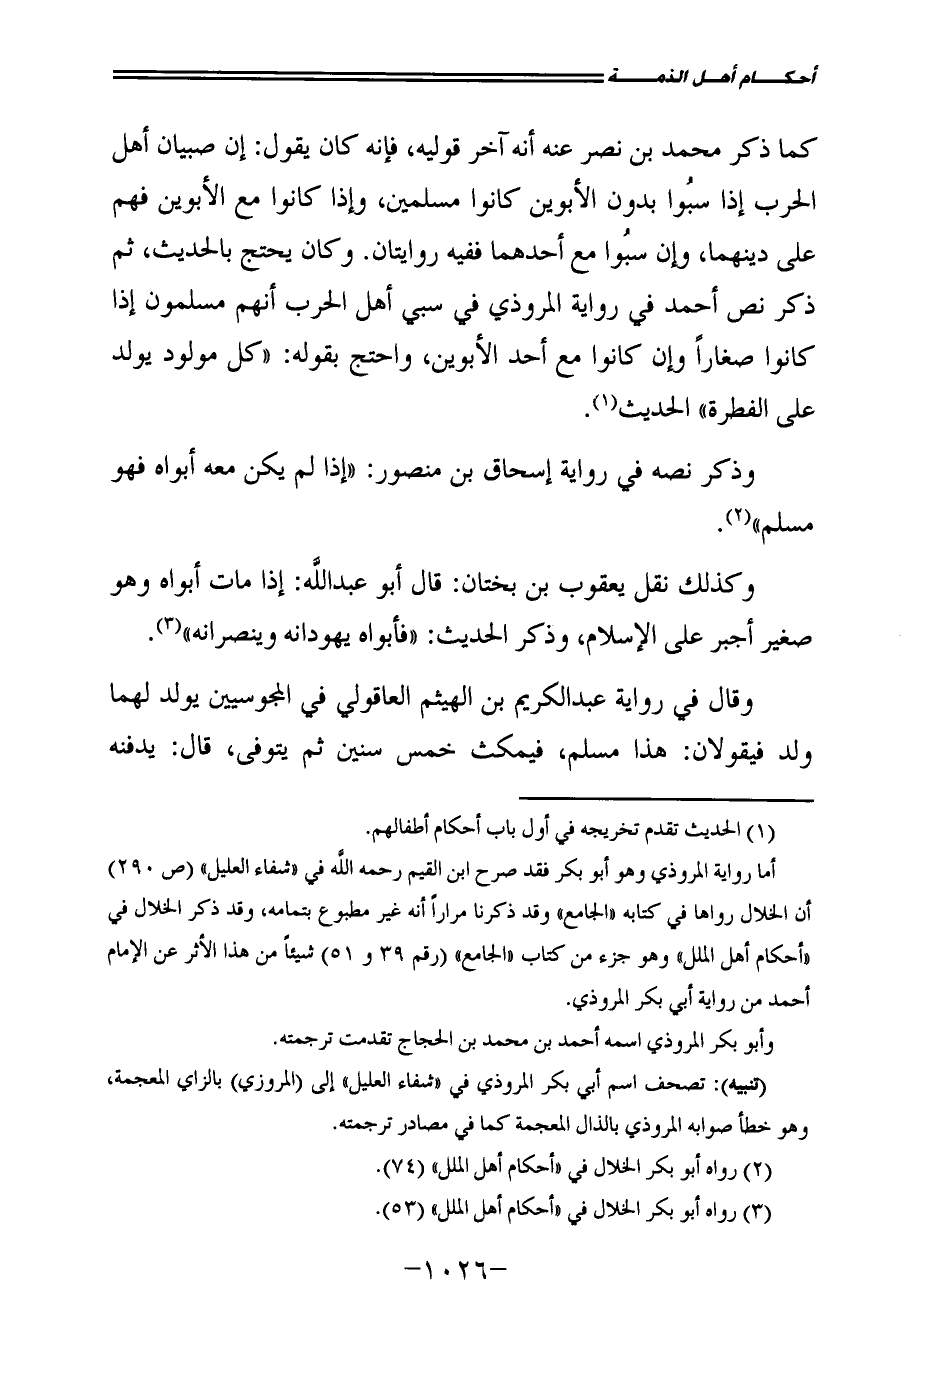 أحكـــام أهـل الذمـــة
كما ذكر محمد بن نصر عنه أنه آخر قوليه، فإنه كان يقول: إن صبيان أهل
الحرب إذا سبُوا بدون الأبوين كانوا مسلمين، وإذا كانوا مع الأبوين فهم
على دينهما، وإن سبُوا مع أحدهما ففيه روايتان. وكان يحتج بالحديث، ثم
ذكر نص أحمد في رواية المروذي في سبي أهل الحرب أنهم مسلمون إذا
كانوا صغاراً وإن كانوا مع أحد الأبوين، واحتج بقوله: «كل مولود يولد
على الفطرة» الحديث(١).
وذكر نصه في رواية إسحاق بن منصور: «إذا لم يكن معه أبواه فهو
مسلم»(٢).
وكذلك نقل يعقوب بن بختان: قال أبو عبداللَّه: إذا مات أبواه وهو
صغير أجبر على الإسلام، وذكر الحديث: «فأبواه يهودانه وينصرانه»(٣).
وقال في رواية عبدالكريم بن الهيثم العاقولي في المجوسيين يولد لهما
ولد فيقولان: هذا مسلم، فيمكث خمس سنين ثم يتوفى، قال: يدفنه
(١) الحديث تقدم تخريجه في أول باب أحكام أطفالهم.
أما رواية المروذي وهو أبو بكر فقد صرح ابن القيم رحمه اللَّه في «شفاء العليل» (ص ٢٩٠)
أن الخلال رواها في كتابه «الجامع» وقد ذكرنا مراراً أنه غير مطبوع بتمامه، وقد ذكر الخلال في
«أحكام أهل الملل» وهو جزء من كتاب «الجامع» (رقم ٣٩ و ٥١) شيئاً من هذا الأثر عن الإمام
أحمد من رواية أبي بكر المروذي.
وأبو بكر المروذي اسمه أحمد بن محمد بن الحجاج تقدمت ترجمته.
(تنبيه): تصحف اسم أبي بكر المروذي في «شفاء العليل» إلى (المروزي) بالزاي المعجمة،
وهو خطأ صوابه المروذي بالذال المعجمة كما في مصادر ترجمته.
(٢) رواه أبو بكر الخلال في «أحكام أهل الملل» (٧٤).
(٣) رواه أبو بكر الخلال في «أحكام أهل الملل» (٥٣).
-١٠٢٦-